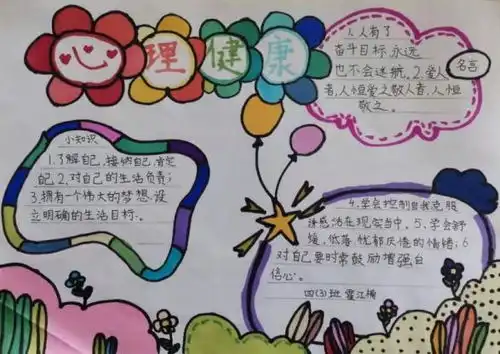 心理健康
1.人有了
奋斗目标,永远
也不会迷航。2.爱人
者,人恒爱之敬人者,人恒
敬之。
名言
小知识
1.了解自己,接纳自己,肯定自
己2.对自己的生活负责;
3.拥有一个伟大的梦想,设
立明确的生活目标。
4.学会控制自我克服
活在现实当中。5.学会舒
缓,低落,忧郁
对自己要时常鼓励增强自
信心。
四(3)班